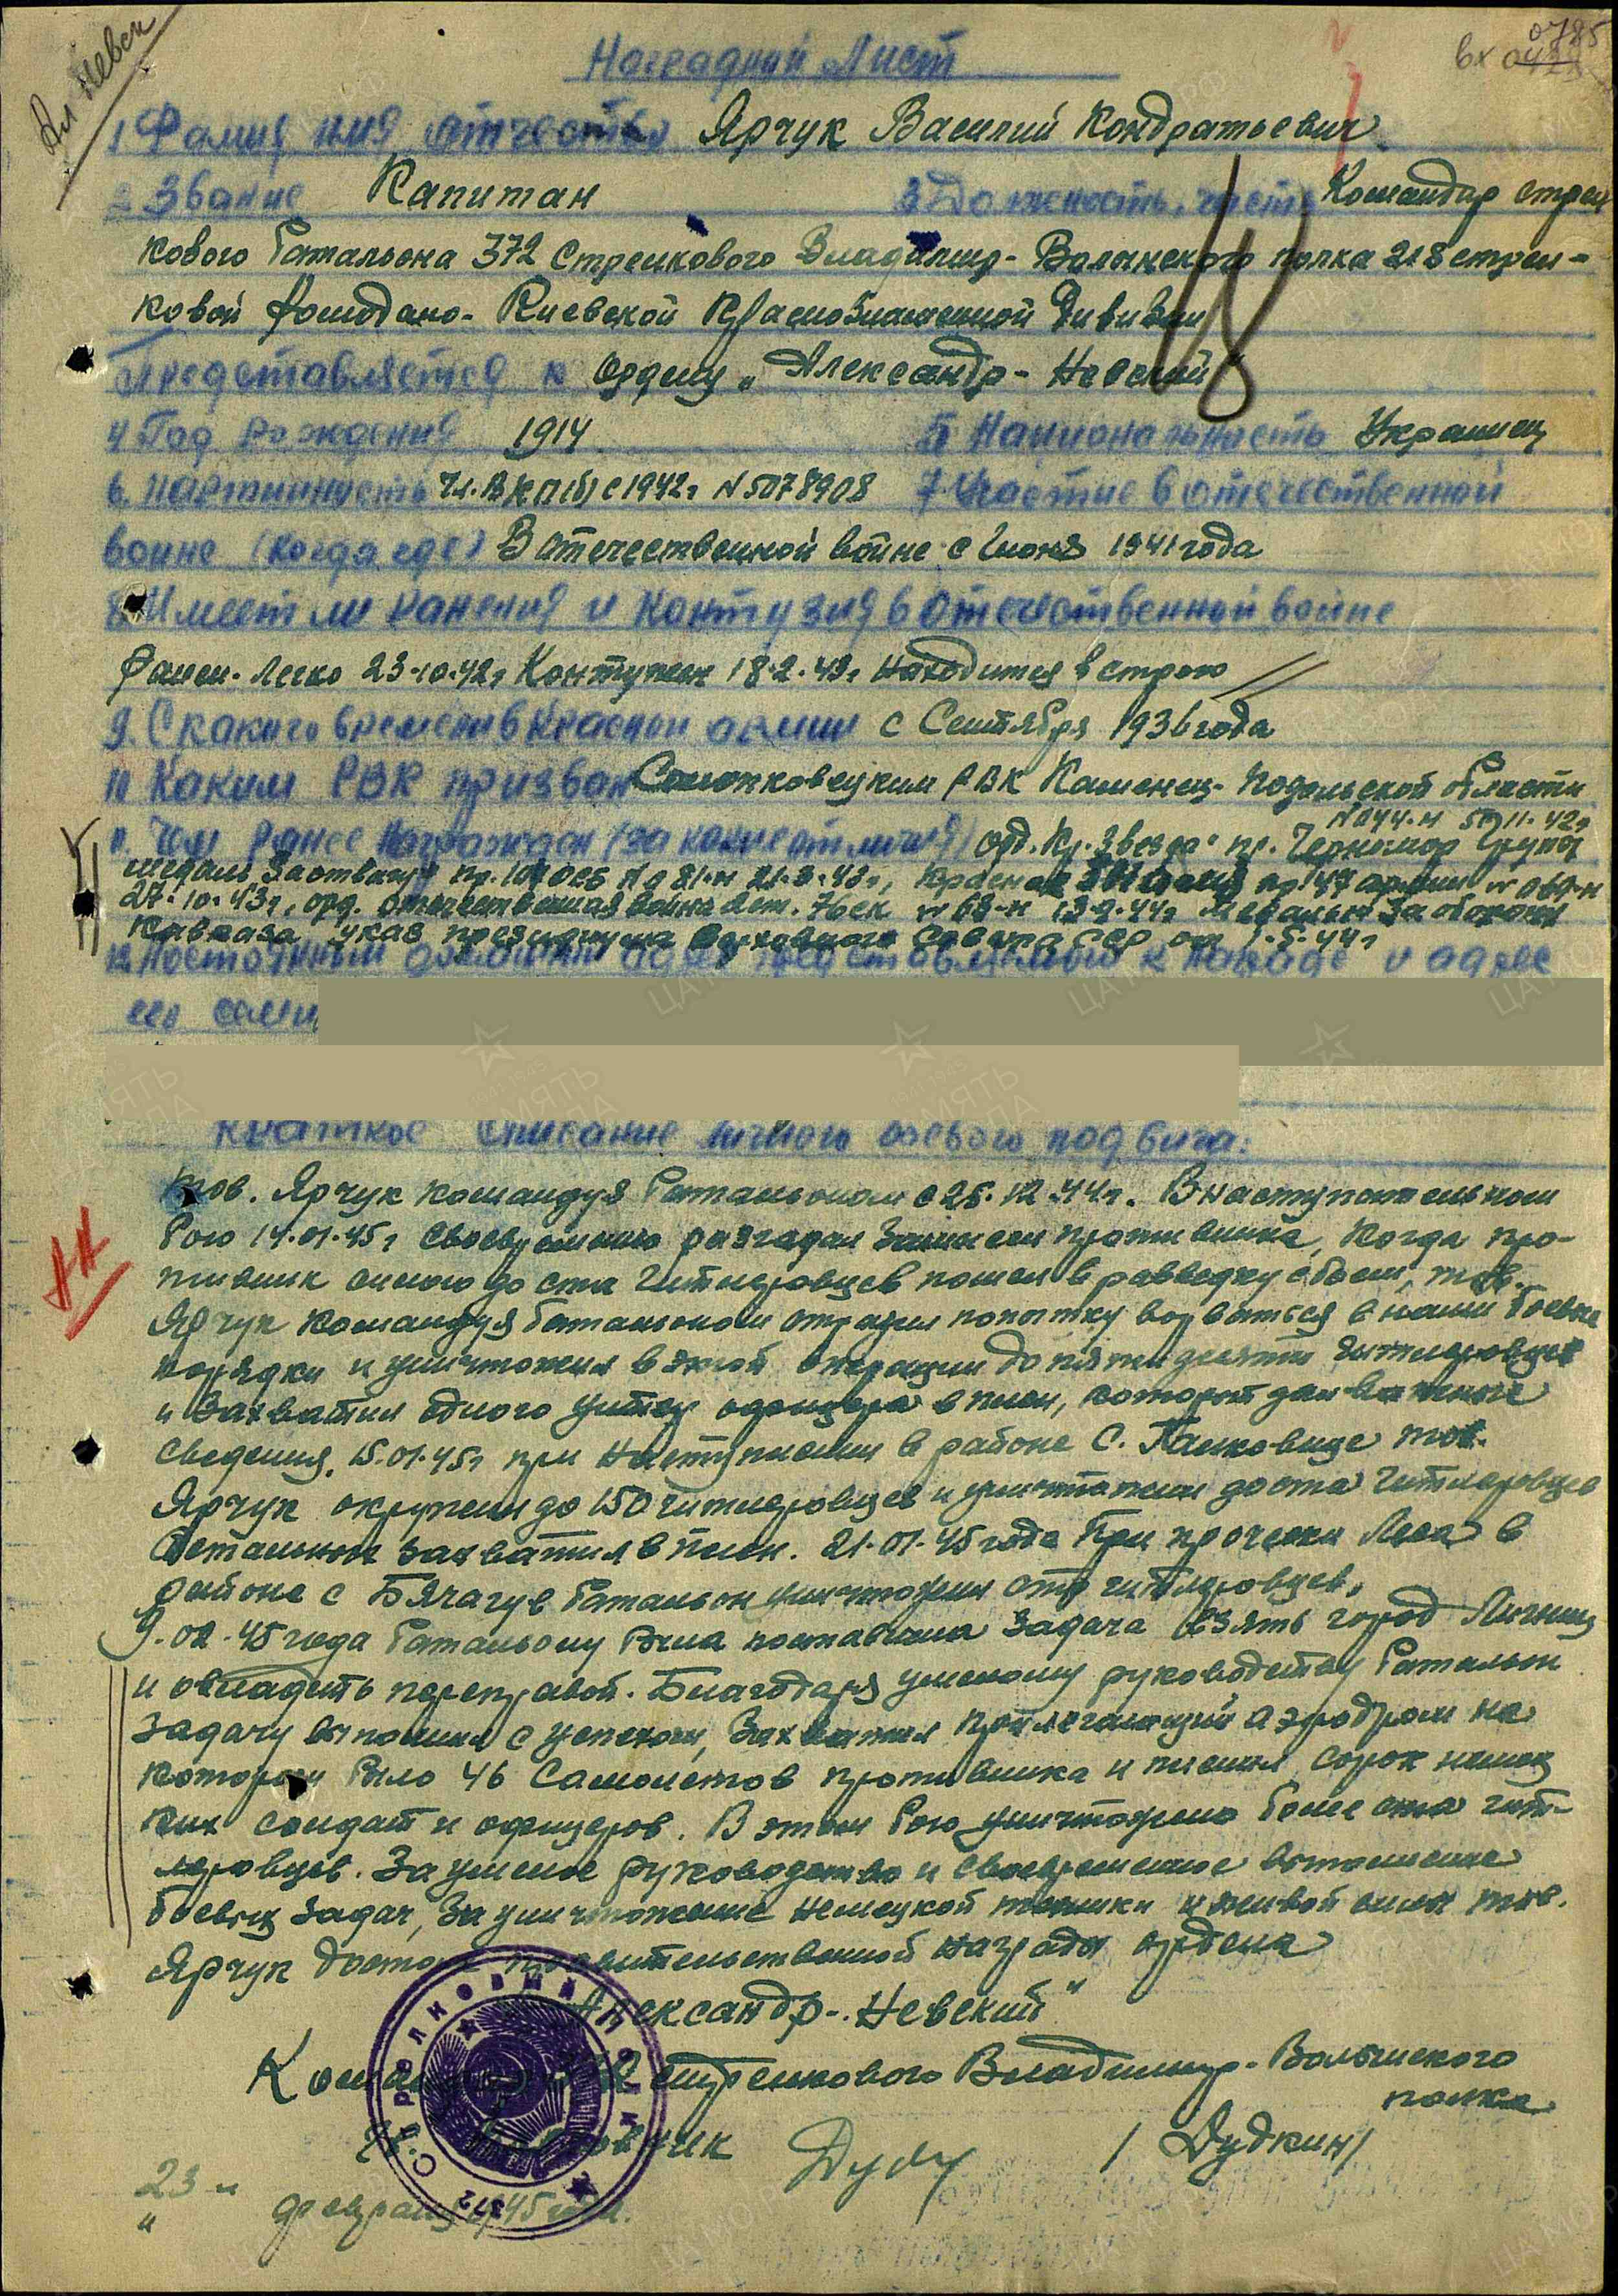 Ал Невск
вх 0428
0785
Наградной Лист
1 Фамия имя отчество Ярчук Василий Кондратьевич
2 Звание Капитан 3 Должность, часть Командир стрел
кового батальона 372 Стрелкового Владимир-Волынского полка 218 стрел-
ковой Ромодано-Киевской Краснознаменной дивизии
Представляется к ордену „Александр-Невский"
4 Год рождения 1914 5 Национальность Украинец
6. Партийность Чл. ВКП(б) с 1942г N 5078908 7. Участие в отечественной
войне (когда где) В отечественной войне с Июня 1941 года
8. Имеет ли ранения и контузия в отечественной войне
Ранен. Легко 23-10-42г Контужен 18.2.43г Находится в строю
9. С какого времени в красной армии с Сентября 1936 года
10 Каким РВК призван РВК Каменец-Подольской области
11. Чем ранее награжден (за какие отличия) орд. Кр. Звезда" пр. Черномор группы
N 044-н 5.11.42г
медаль За отвагу пр. 81-н 21.3.43г, Красная Звезда пр. 47 армии N 069-н
27.10.43г, орд. отечественная война 2 ст. 76 ск N 63-н 13-9-44г Медалью За оборону
Кавказа указ президиума Верховного Совета СССР от 1-5-44г
12. Постоянный домашний адрес представляемого к награде и адрес
его семьи
Краткое описание личного боевого подвига:
тов. Ярчук командуя батальоном с 25.12.44г. В наступательном
бою 14.01.45г своевременно разгадал Замысел противника, Когда про-
тивник силою до ста Гитлеровцев пошел в разведку с боем, тов.
Ярчук командуя батальоном отразил попытку ворваться в наши боевые
порядки и уничтожил в этой операции до пятидесяти гитлеровцев
и Захватил одного унтер офицера в плен, который дал важные
сведения. 15.01.45г при наступлении в районе С. Палковице тов.
Ярчук окружил до 150 гитлеровцев и уничтожил до ста Гитлеровцев
Остальных Захватил в плен. 21.01.45 года При прочески Леса в
районе с батальон уничтожил сто гитлеровцев.
9.02.45 года батальону была поставлена Задача взять город Лигниц
и овладеть переправой. Благодаря умелому руководству батальон
Задачу выполнил с успехом, Захватил прилегающий аэродром на
котором было 46 Самолетов противника и пленил сорок немец
ких солдат и офицеров. В этом бою уничтожено более ста гит-
леровцев. За умелое руководство и своевременное выполнение
боевых Задач, За уничтожение немецкой техники и живой силы тов.
Ярчук достоин правительственной награды ордена
„Александр-Невский"
Командир 372 стрелкового Владимир-Волынского
полка
/Дудкин/
„23" февраля 1945 года.
СТРЕЛКОВЫЙ ПОЛК
372